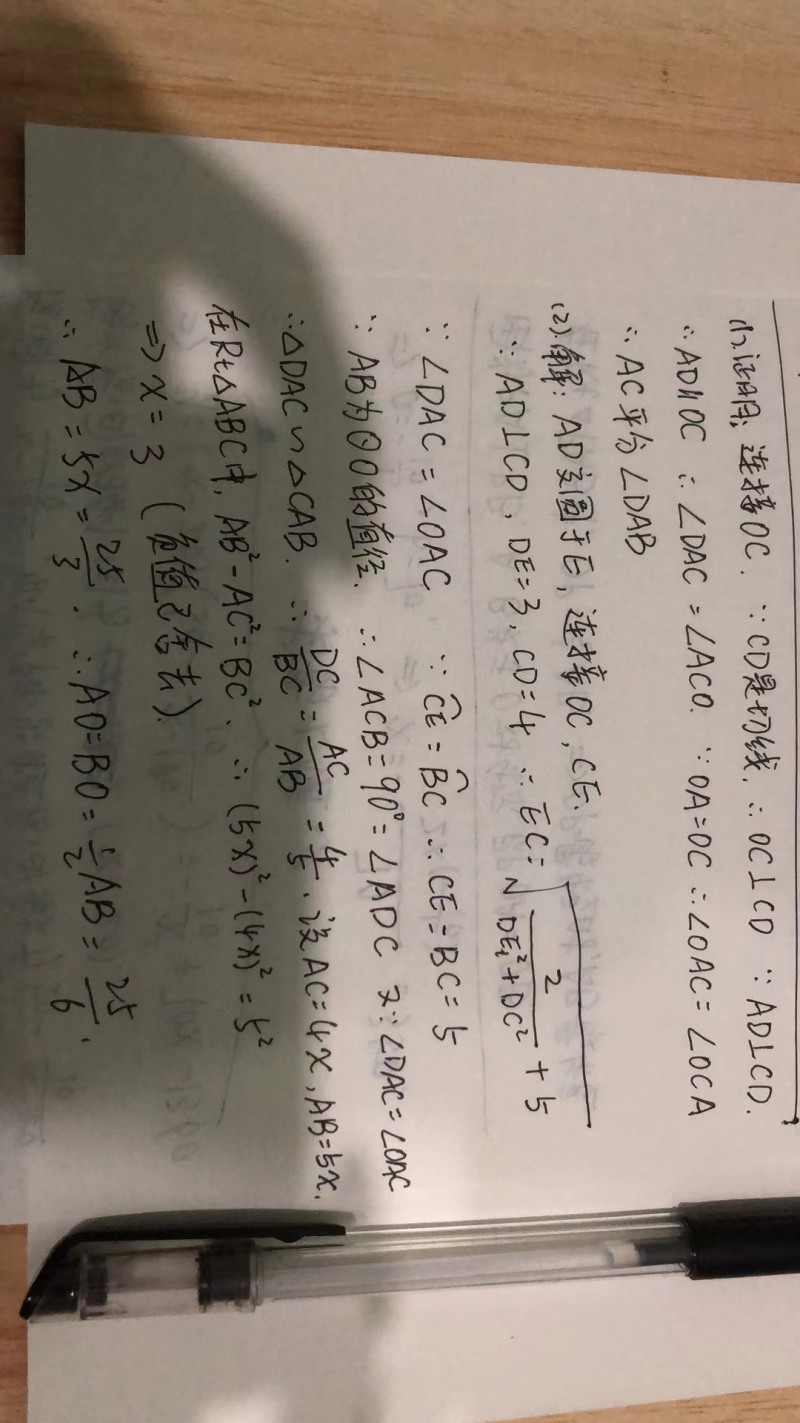 (1). 证明: 连接OC. ∵CD是切线. ∴OC⊥CD ∵AD⊥CD.
∴AD∥OC ∴∠DAC=∠ACO. ∵OA=OC ∴∠OAC=∠OCA
∴AC平分∠DAB
(2). 解: AD交圆于E, 连接OC, CE.
∵AD⊥CD, DE=3, CD=4 ∴EC=√(2/(DE²+DC²)+5)
∵∠DAC=∠OAC ∵C͡E=B͡C ∴CE=BC=5
∵AB为⊙O的直径. ∴∠ACB=90°=∠ADC 又∵∠DAC=∠OAC
∴△DAC∽△CAB. ∴DC/BC=AC/AB=4/5. 设AC=4x, AB=5x.
在Rt△ABC中, AB²-AC²=BC². ∴(5x)²-(4x)²=5²
⇒x=3 (负值已舍去).
∴AB=5x=25/3. ∴AO=BO=1/2AB=25/6.